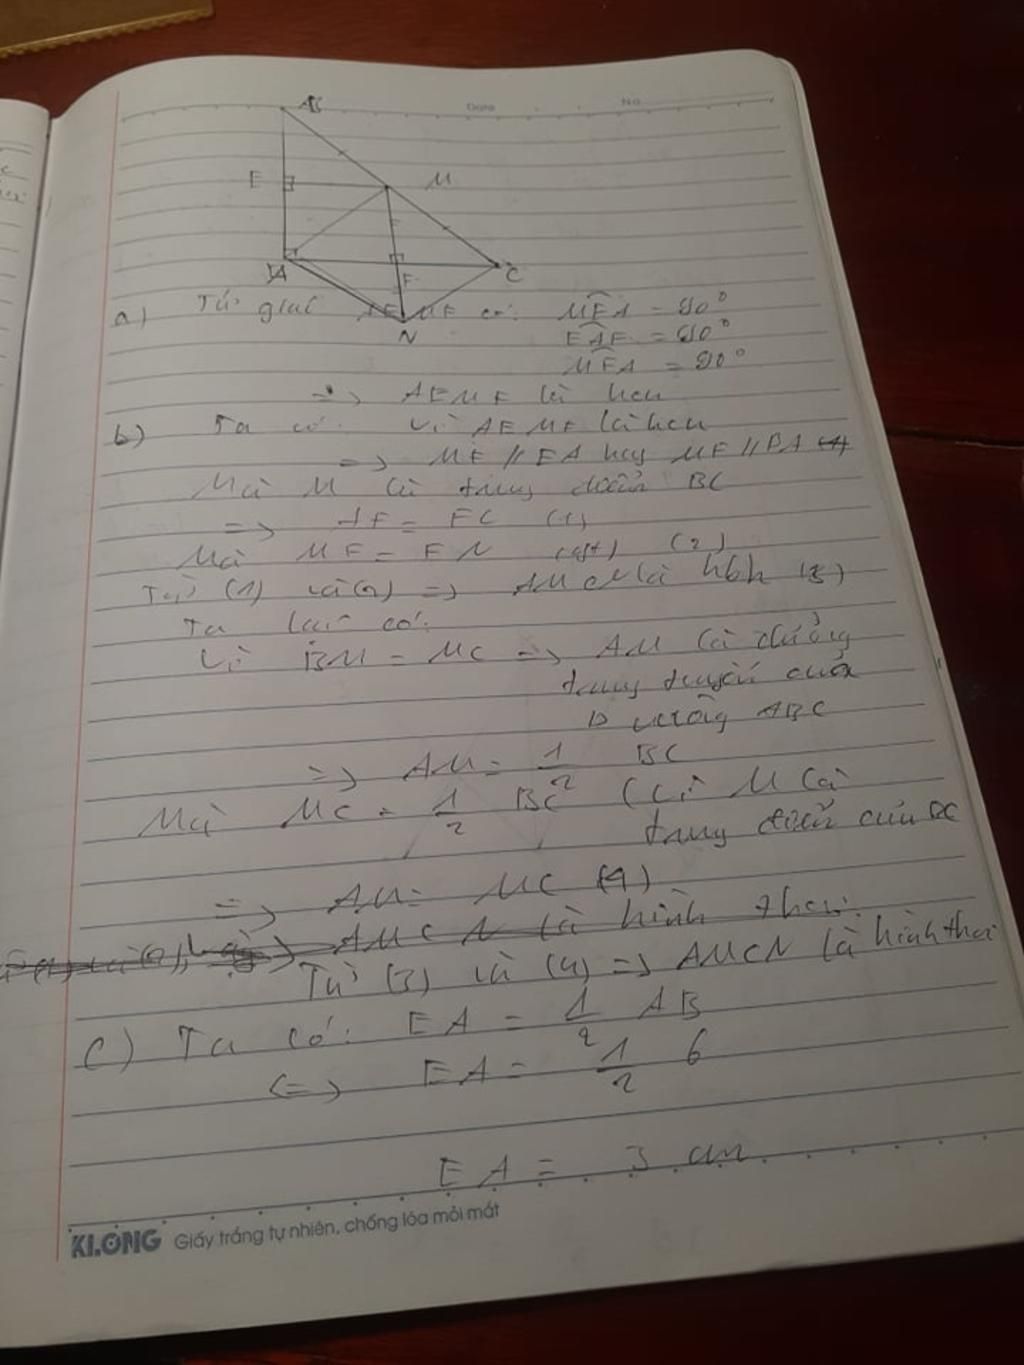 Date No
B
E
M
A
F
C
N
a) Tứ giác AEMF có: MEA = 90°
EAF = 90°
MFA = 90°
=> AEMF là hcn
b) Ta có: vì AEMF là hcn
=> MF // EA hay MF // BA
Mà M là trung điểm BC
=> AF = FC (1)
Mà MF = FN (gt) (2)
Từ (1) và (2) => AMCN là hbh (3)
Ta lại có:
Vì BM = MC => AM là đường
trung tuyến của
Δ vuông ABC
=> AM = 1/2 BC
Mà MC = 1/2 BC (vì M là
trung điểm của BC
=> AM = MC (4)
AMCN là hình thoi
Từ (3) và (4) => AMCN là hình thoi
c) Ta có: EA = 1/2 AB
<=> EA = 1/2 6
EA = 3 cm
KLONG Giấy trắng tự nhiên, chống lóa mỏi mắt